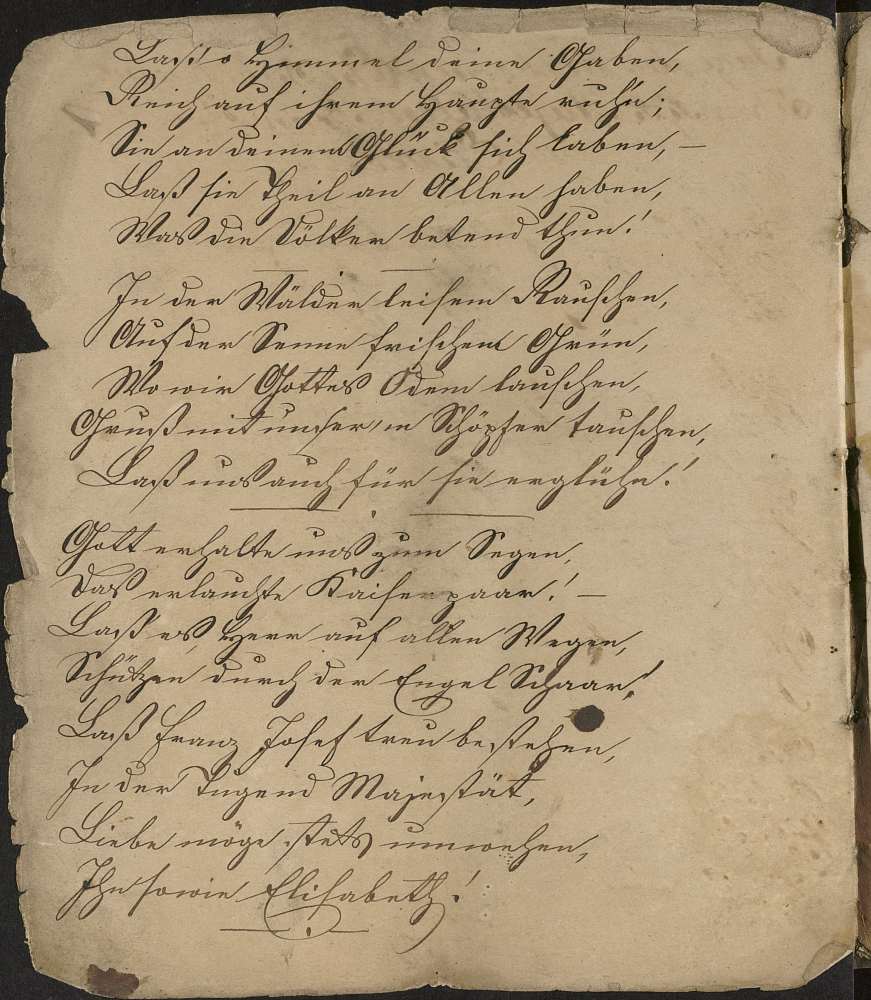 Laß o Himmel deine Gaben,
Reich auf ihrem Haupte ruh'n;
Sie an deinem Glück sich laben, –
Laß sie Theil an Allen haben,
Was die Völker betend thun!
In der Wälder leisem Rauschen,
Auf der Senne frischem Grün,
Wo wir Gottes Odem lauschen,
Gruß mit unser'm Schöpfer tauschen,
Laß uns auch für sie erglühn!
Gott erhalte uns zum Segen,
Das erlauchte Kaiserpaar! –
Laß es, Herr auf allen Wegen,
Schützen durch der Engel Schaar!
Laß Franz Josef treu bestehen,
In der Tugend Majestät,
Liebe möge stets umwehen,
Ihn sowie Elisabeth!